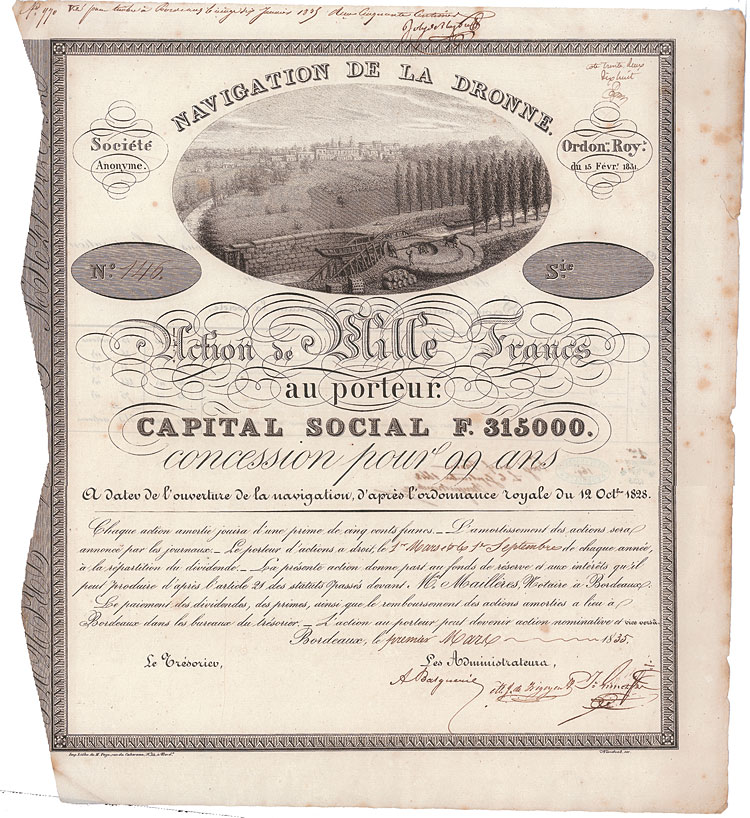 N.° 970 Vu pour timbre à Bordeaux Janvier 1835 deux cinquante centimes
NAVIGATION DE LA DRONNE.
Société
Anonyme.
Ordon.ce Roy.le
du 15 Févr. 1831.
N.° 146.
S.ie
Action de Mille Francs
au porteur.
CAPITAL SOCIAL F. 315000.
concession pour 99 ans
A dater de l'ouverture de la navigation, d'après l'ordonnance royale du 12 Oct.bre 1828.
Chaque action amortie jouira d'une prime de cinq cents francs. _ L'amortissement des actions sera
annoncé par les journaux. _ Le porteur d'actions a droit, le 1er Mars et le 1er Septembre de chaque année,
à la répartition du dividende. _ La présente action donne part au fonds de réserve et aux intérêts qu'il
peut produire d'après l'article 21 des statuts passés devant M.e Maillères, Notaire à Bordeaux.
Le paiement des dividendes, des primes, ainsi que le remboursement des actions amorties a lieu à
Bordeaux dans les bureaux du trésorier. _ L'action au porteur peut devenir action nominative et vice versà.
Bordeaux, le premier Mars 1835.
Le Trésorier,
Les Administrateurs,